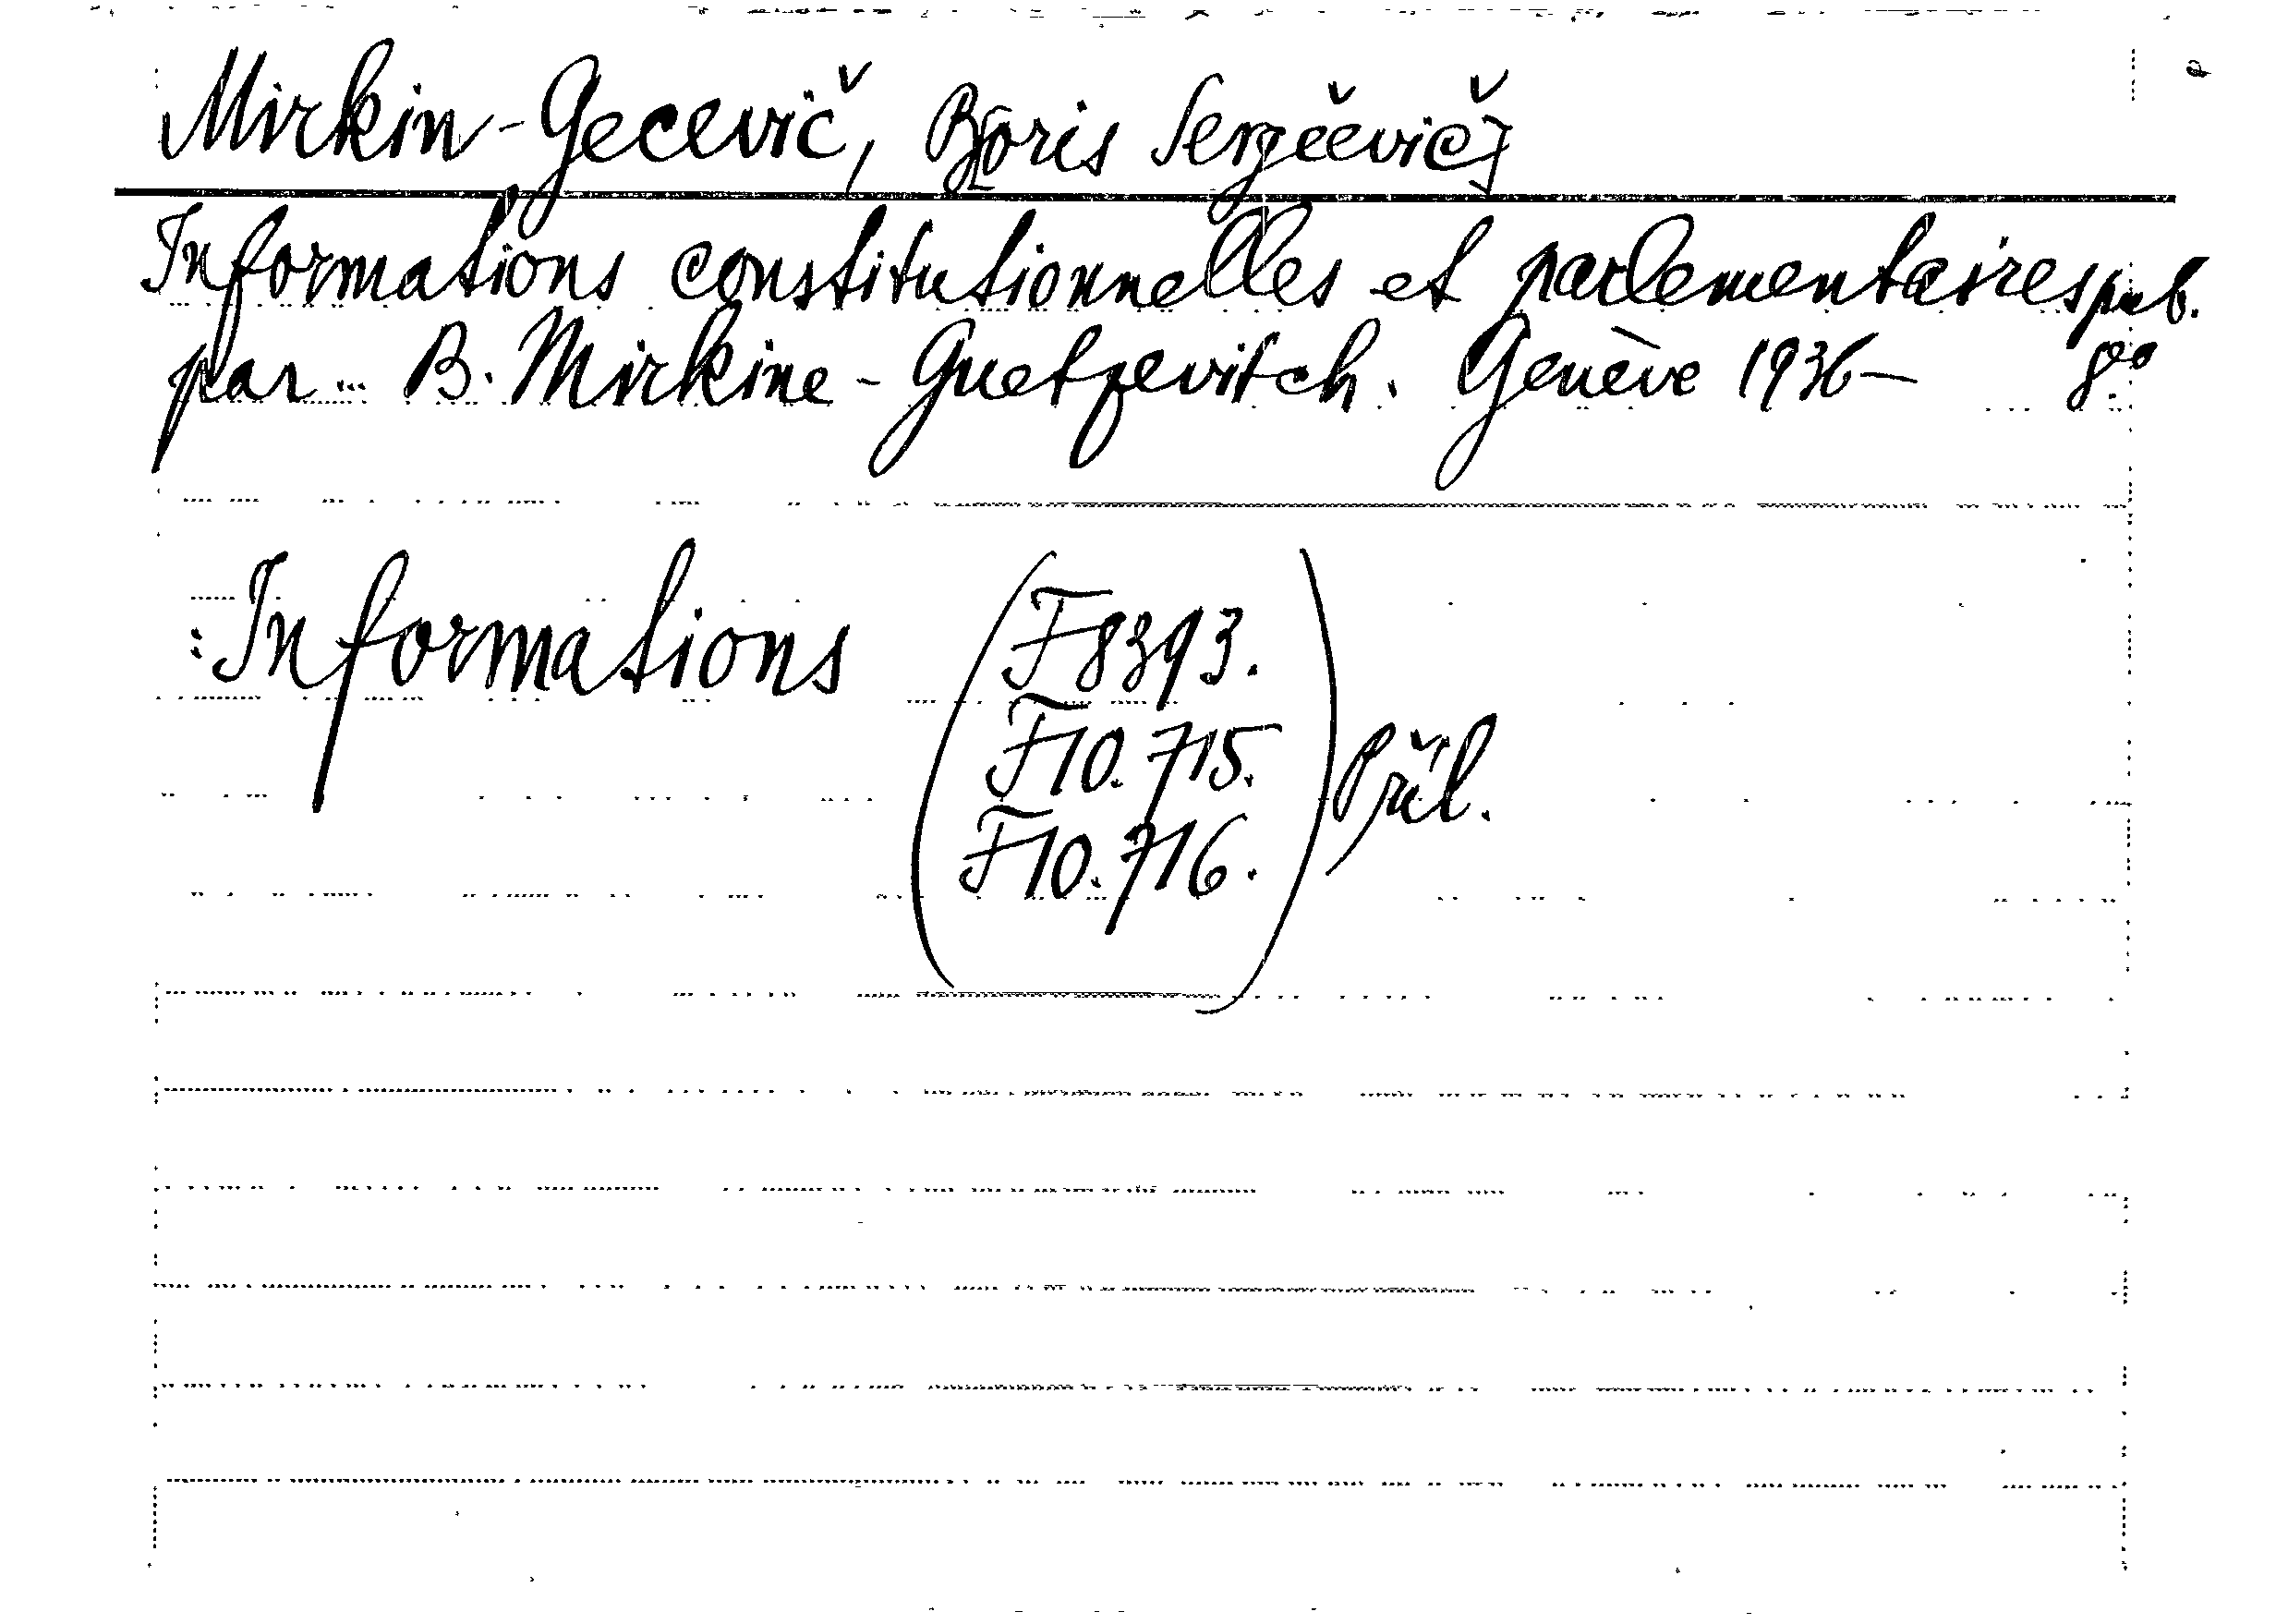 Mirkin-Gecevič, B[oris Sergěevič]
Informations constitutionnelles et parlementaires pub.
par ... B. Mirkine-Guetzevitch. Genève 1936- 8°
:Informations (F 8393.
F 10.715.
F 10.716.) Příl.